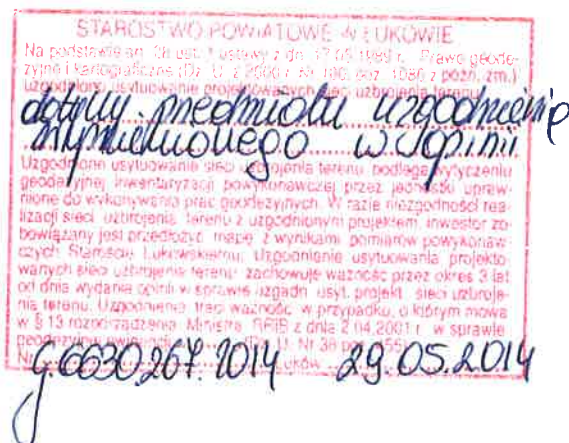 STAROSTWO POWIATOWE W ŁUKOWIE
Na podstawie art. 28 ust. 1 ustawy z dn. 17.05.1989 r. Prawo geode-
zyjne i kartograficzne (Dz. U. z 2000 r. Nr 100, poz. 1086 z późn. zm.)
uzgodniono usytuowanie projektowanych sieci uzbrojenia terenu
dotyczy przedmiotu uzgodnienia
wymienionego w opinii
Uzgodnione usytuowanie sieci uzbrojenia terenu podlega wytyczeniu
geodezyjnej inwentaryzacji powykonawczej przez jednostki upraw-
nione do wykonywania prac geodezyjnych. W razie niezgodności rea-
lizacji sieci uzbrojenia terenu z uzgodnionym projektem, inwestor zo-
bowiązany jest przedłożyć mapę z wynikami pomiarów powykonaw-
czych Staroście Łukowskiemu. Uzgodnienie usytuowania projekto-
wanych sieci uzbrojenia terenu zachowuje ważność przez okres 3 lat
od dnia wydania opinii w sprawie uzgodn. usyt. projekt. sieci uzbroje-
nia terenu. Uzgodnienie traci ważność w przypadku, o którym mowa
w § 13 rozporządzenia Ministra RRiB z dnia 2.04.2001 r. w sprawie
U. Nr 38 poz. 455)
Nr G.6630.267.2014 Łuków 29.05.2014